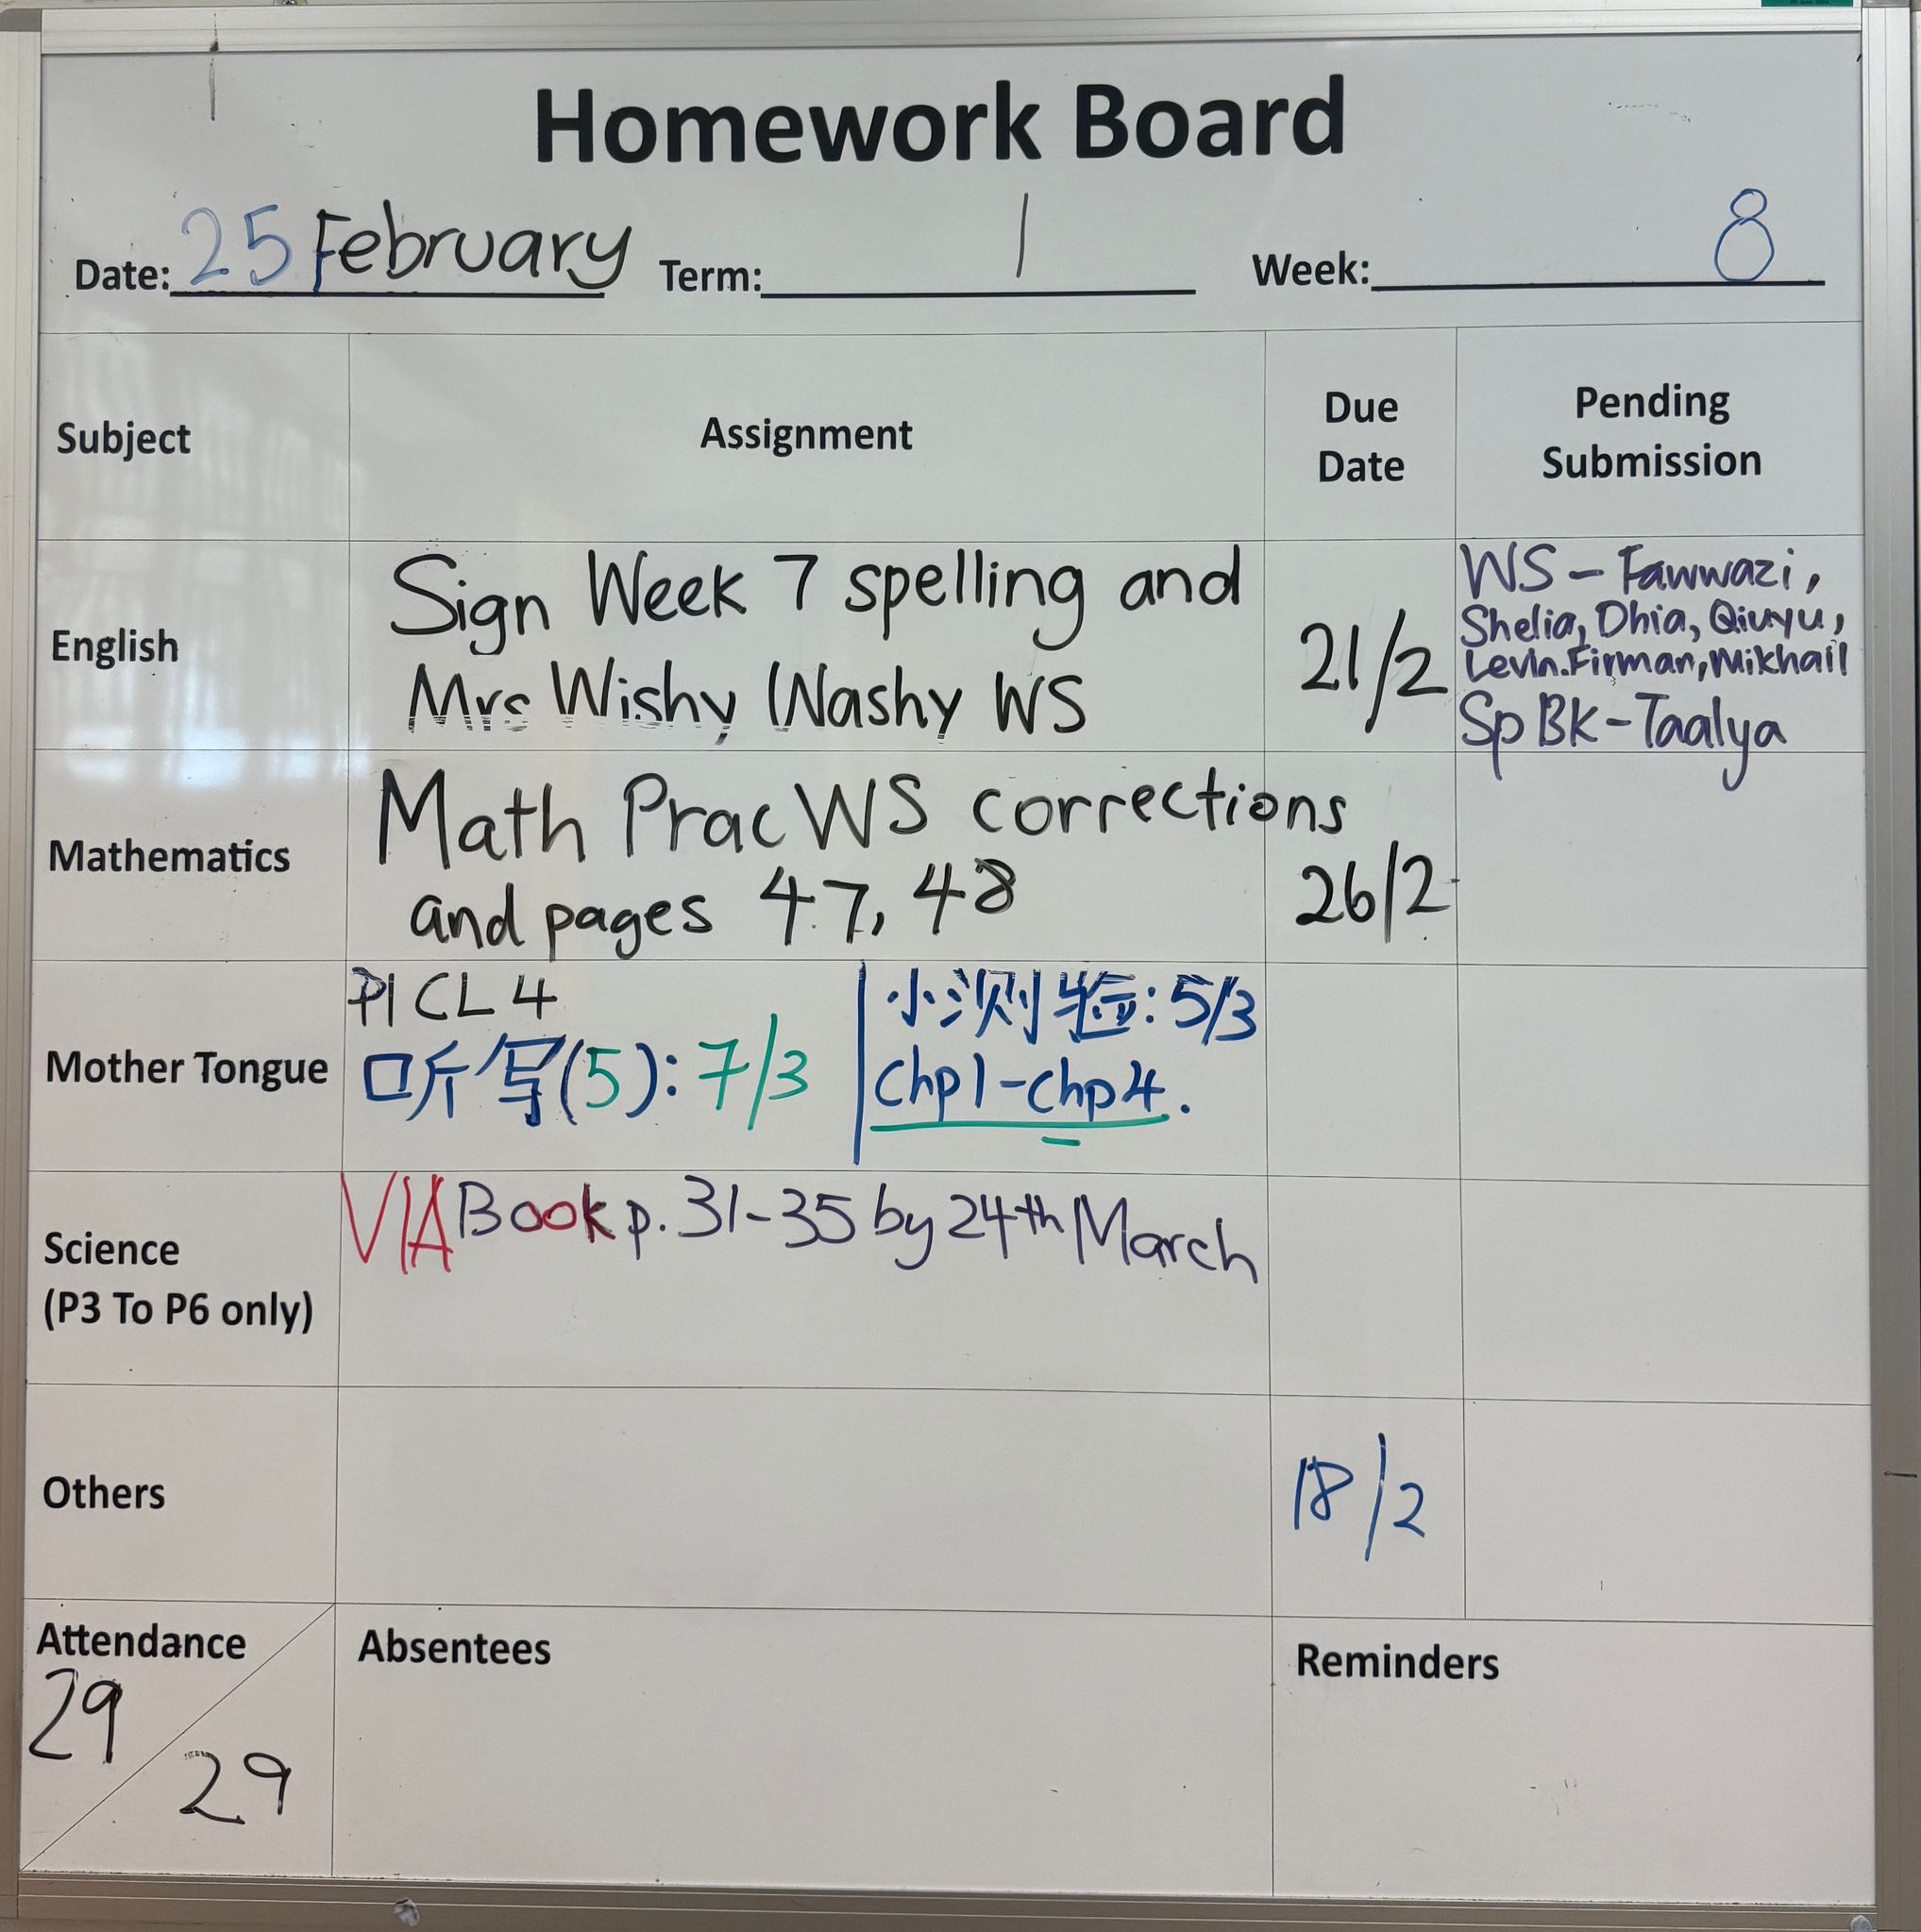 Homework Board
Date: 25 February Term: 1 Week: 8
Subject Assignment Due Date Pending Submission
English
Sign Week 7 spelling and
Mrs Wishy Washy WS
21/2
WS - Fawwazi,
Shelia, Dhia, Qiuyu,
Levin. Firman, Mikhail
Sp BK - Taalya
Mathematics
Math Prac WS corrections
and pages 47, 48
26/2
Mother Tongue
P1 CL 4
听写(5): 7/3
小测验: 5/3
Chp1 - Chp4.
Science
(P3 To P6 only)
VIA Book p. 31-35 by 24th March
Others
18/2
Attendance
29
29
Absentees
Reminders